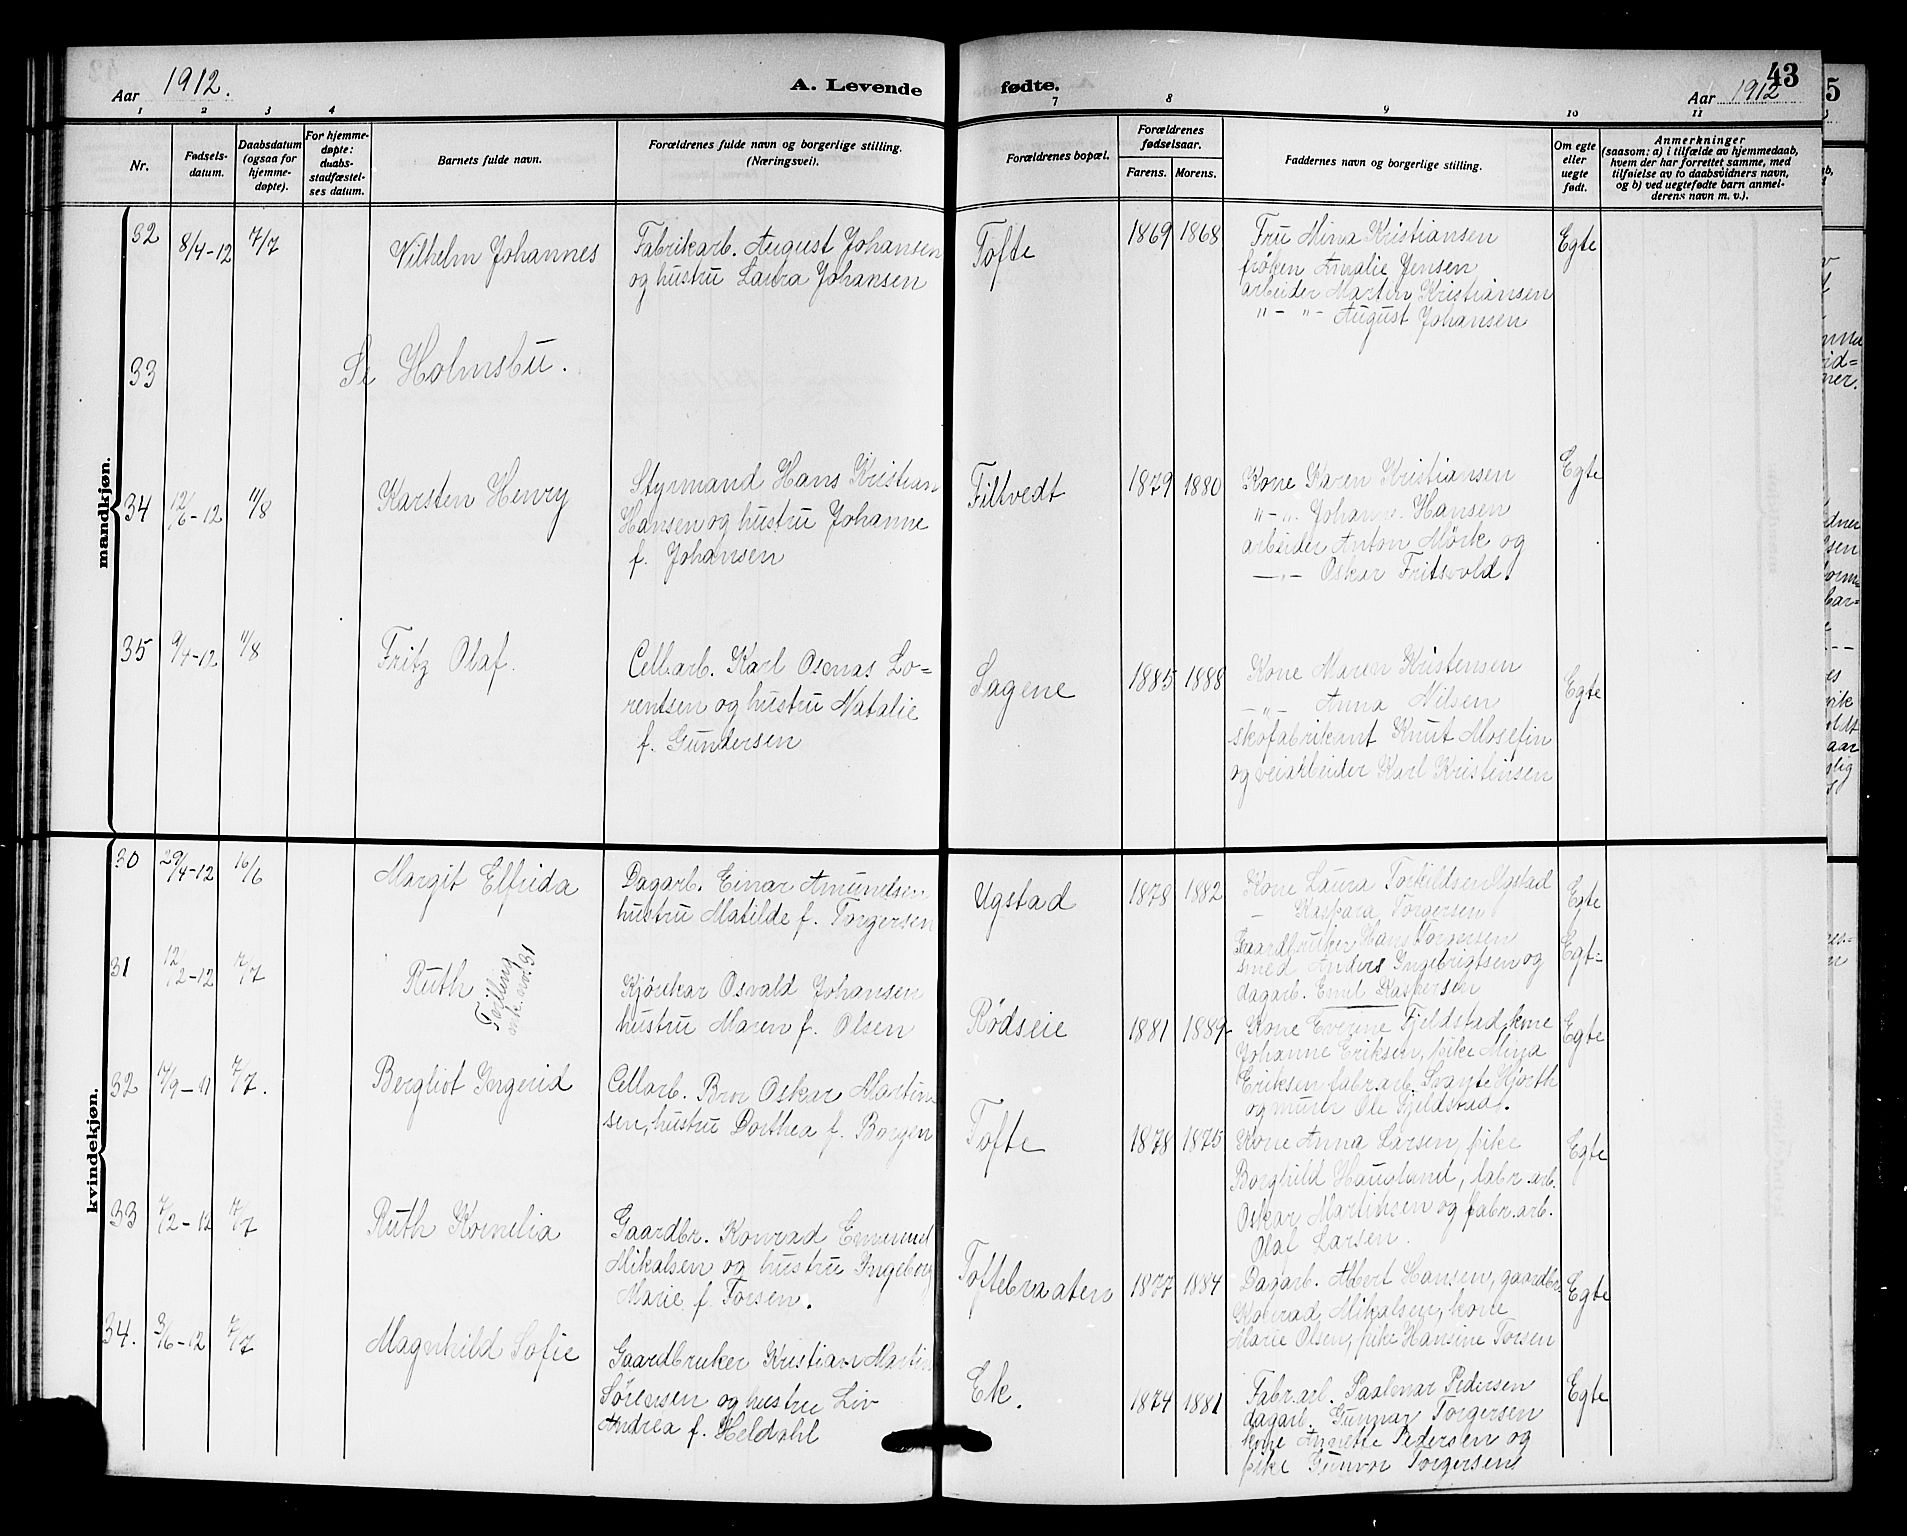 Aar 1912.
A. Levende
fødte.
43
Aar 1912
1 2 3 4 7 8 9 10 11
Nr.
Fødsels-
datum.
Daabsdatum
(ogsaa for
hjemme-
døpte).
For hjemme-
døpte:
daabs-
stadfæstel-
ses datum.
Barnets fulde navn.
Forældrenes fulde navn og borgerlige stilling.
(Næringsvei).
Forældrenes bopæl.
Forældrenes
fødselsaar.
Farens. Morens.
Faddernes navn og borgerlige stilling.
Om egte
eller
uegte
født.
Anmerkninger
(saasom: a) i tilfælde av hjemmedaab,
hvem der har forrettet samme, med
tilføielse av to daabsvidners navn,
og b) ved uegtefødte barn anmel-
derens navn m. v.).
mandkjøn.
32 8/4-12 7/7 Vilhelm Johannes
Fabrikarb. August Johansen
og hustru Laura Johansen
Tofte 1869 1868
Fru Mina Kristiansen
frøken Amalie Jensen
arbeider Martin Kristiansen
" - " - August Johansen
Egte
33 Se Holmsbu.
34 12/6-12 11/8 Karsten Henry
Styrmand Hans Kristian
Hansen og hustru Johanne
f. Johansen
Filtvedt 1879 1880
Kone Karen Kristiansen
" - " . Johann. Hansen
arbeider Anton Mörk og
— " - Oskar Fritsvold.
Egte
35 9/4-12 11/8 Fritz Olaf.
Cell.arb. Karl Osmas Lo-
rentsen og hustru Natalie
f. Gundersen
Sagene 1885 1888
Kone Maren Kristensen
— " — Anna Nilsen
skofabrikant Knut Mosefin
og veiarbeider Karl Kristinsen
Egte
kvindekjøn.
30 29/4-12 16/6 Margit Elfrida
Dagarb. Einar Amundsen
hustru Matilde f. Torgersen
Ugstad 1878 1882
Kone Laura Torkildsen Ugstad
— Kaspara Torgersen
Gaardbruker Hans Torgersen
smed Anders Ingebrigtsen og
dagarb. Emil Kaspersen
Egte
31 12/2-12 7/7 Ruth
Tvilling
Kjörekar Osvald Johansen
hustru Maren f. Olsen
Rødseie 1881 1889
Kone Everine Fjeldstad, kone
Johanne Eriksen, pike Mina
Eriksen fabr.arb. Svante Hjorth
og murer Ole Fjeldstad.
Egt=
Egte
32 17/9-11 7/7. Bergliot Ingerid
Cellarb. Bror Oskar Martin
sen, hustru Dorthea f. Borgen
Tofte 1878 1875
Kone Anna Larsen, pike
Borghild Haugland, fabr.arb.
Oskar Martinsen og fabr.arb.
Olaf Larsen.
Egte
33 7/2-12 7/7 Ruth Kornelia
Gaardbr. Konrad Emanuel
Mikalsen og hustru Ingeborg
Marie f. Torsen.
Toftebraaten 1877 1884
Dagarb. Albert Hansen, gaardbr.
Konrad Mikalsen, kone
Marie Olsen, pike Hansine Torsen
Egte
34. 3/6-12 7/7 Magnhild Sofie
Gaardbruker Kristian Martin
Sørensen og hustru Liv
Andrea f. Heldahl
Ek. 1874 1881
Fabr.arb. Paalmar Pedersen
dagarb. Gunnar Torgersen
kone Annette Pedersen og
pike Gunvor Torgersen
Egte